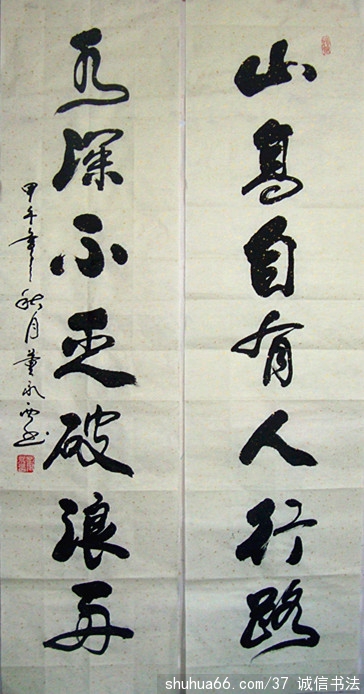 山高自有人行路
水深不乏破浪舟
甲午年秋月董永
shuhua66.com/37 诚信书法